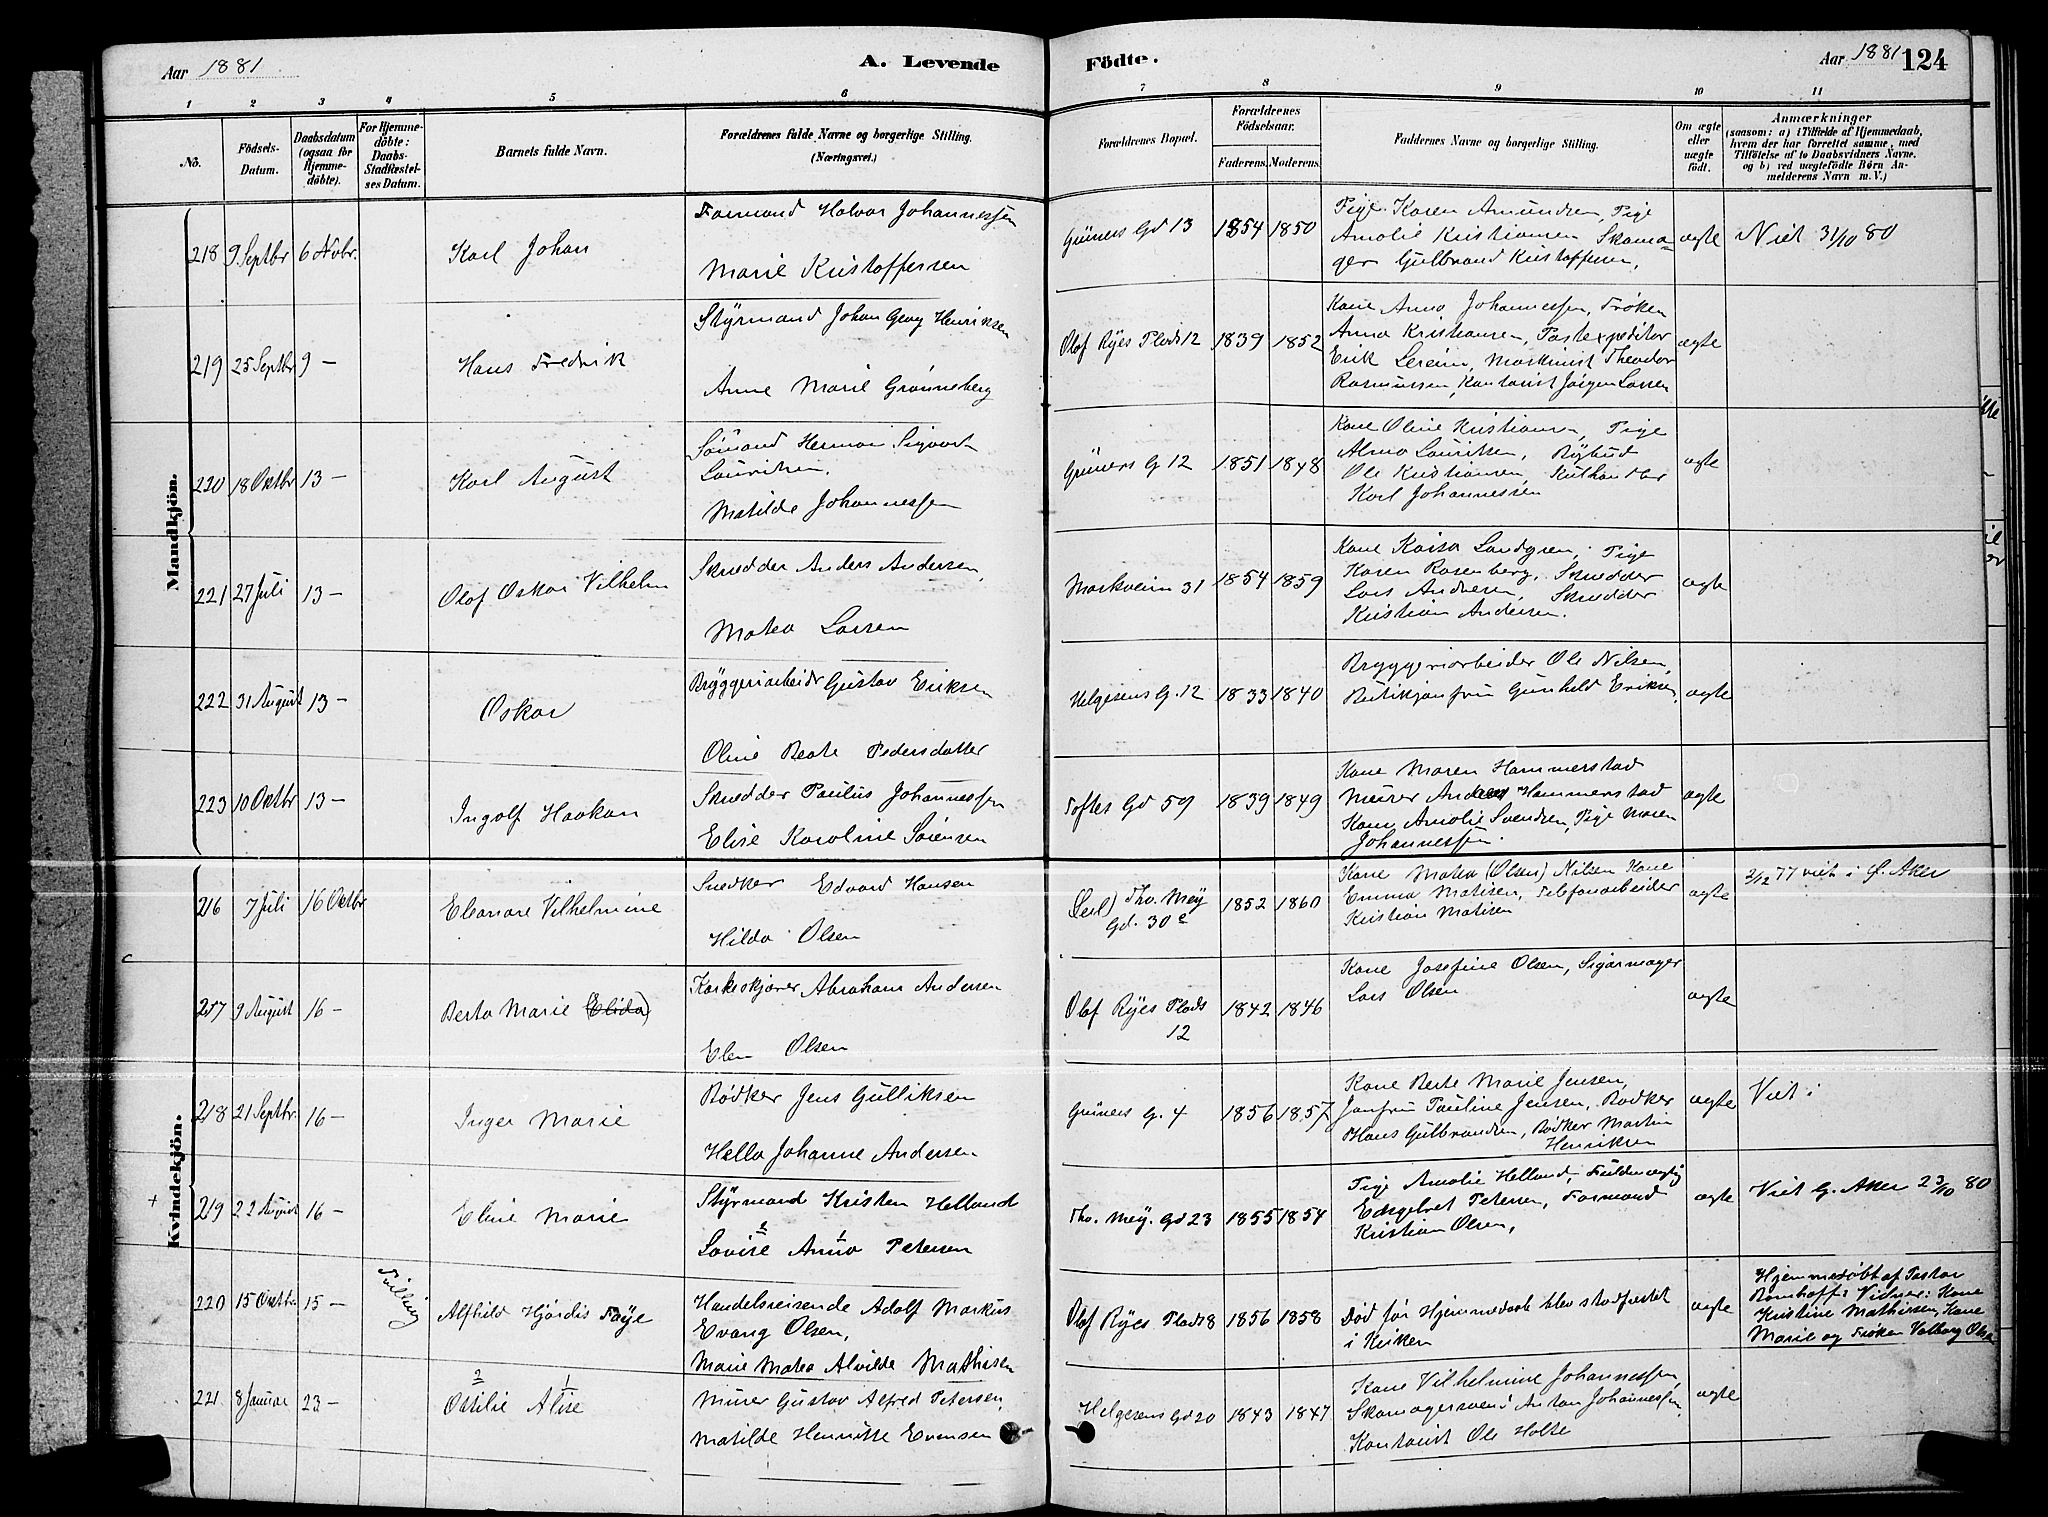 Aar 1881
A. Levende
Födte.
Aar 1881
124
1 2 3 4 5 6 7 8 9 10 11
No.
Födsels-
Datum.
Daabsdatum
(ogsaa for
Hjemme-
döbte).
For Hjemme-
döbte:
Daabs-
Stadfæstel-
ses Datum.
Barnets fulde Navn.
Forældrenes fulde Navne og borgerlige Stilling.
(Næringsvei.)
Forældrenes Bopæl.
Forældrenes
Födselsaar.
Faderens. Moderens.
Faddernes Navne og borgerlige Stilling.
Om ægte
eller
uægte
födt.
Anmærkninger
(saasom: a) i Tilfælde af Hjemmedaab,
hvem der har forrettet samme, med
Tilföielse af to Daabsvidners Navne.
og b) ved uægtefödte Börn An-
melderens Navn m. V.)
Mandkjön.
218 9 Septbr 6 Novbr. Karl Johan
Formand Halvor Johannessen
Marie Kristoffersen
Grüners Gd 13 1854 1850
Pige Karen Amundsen, Pige
Amalie Kristiansen Skoma-
ger Gulbrand Kristoffersen,
ægte
Viet 31/10 80
219 25 Septbr 9 — Hans Fredrik
Styrmand Johan Georg Henriksen
Anne Marie Grønneberg
Olaf Ryes Plads 12 1839 1852
Kone Anna Johannessen, Frøken
Anna Kristiansen, Postexpeditør
Erik Lereim, Maskinist Theodor
Rasmussen, Kontorist Jørgen Larsen
ægte
220 18 Oktbr 13 — Karl August
Sømand Herman Sigvart
Lauritsen.
Matilde Johannessen
Grüners G 12 1851 1848
Kone Oline Kristiansen, Pige
Alma Lauritsen, Bybud
Ole Kristiansen, Kulhandler
Karl Johannessen
ægte
221 27 Juli 13 — Olaf Oskar Vilhelm
Skrædder Anders Andersen,
Matea Larsen
Markveien 31 1854 1859
Kone Kaisa Landgren, Pige
Karen Rosenberg, Skrædder
Lars Andersen, Skrædder
Kristian Andersen.
ægte
222 31 August 13 — Oskar
Bryggeriarbeidr Gustav Eriksen
Oline Beate Pedersdatter
Helgesens G. 12 1833 1840
Bryggeriarbeider Ole Nilsen,
Butikjomfru Gunhild Eriksen,
ægte
223 10 Oktbr 13 — Ingolf Haakon
Skrædder Paulus Johannessen
Elise Karoline Sørensen
Toftes Gd 59 1839 1849
Kone Maren Hammerstad
Murer Anders Hammerstad
Kone Amalie Svendsen, Pige Maren
Johannessen.
ægte
Kvindekjön.
216 7 Juli 16 Oktbr Eleonore Vilhelmine
Snedker Edvard Hansen
Hilda Olsen
Tho. Mey
Gd. 30c 1852 1860
Kone Matea (Olsen) Nilsen Kone
Emma Matisen, Telefonarbeider
Kristian Matisen
ægte
2/12 77 viet i Ø. Aker
217 9 August 16 — Berta Marie (Elida)
Korkeskjærer Abraham Andersen
Elen Olsen
Olaf Ryes Plads
12
1842 1846
Kone Josefine Olsen, Sigarmager
Lars Olsen
ægte
218 21 Septbr. 16 — Inger Marie
Bødker Jens Gulliksen
Hella Johanne Andersen
Grüners G. 4 1856 1857
Kone Berte Marie Jensen,
Jomfru Pauline Jensen, Bødker
Hans Gulbrandsen, Bødker Martin
Henriksen
ægte
Viet i
+ 219 22 August 16 — Eline Marie
Styrmand Kristen Helland
2 1
Lovise Anna Petersen
Tho. Mey. Gd 23 1855 1854
Pige Amalie Helland, Fuldmægtig
Petersen, Formand
Kristian Olsen,
ægte
Viet Ø. Aker 23/10 80
220 15 Oktbr. 15 — Tvilling Alfhild Hjørdis Føye
Handelsreisende Adolf Markus
Evang Olsen,
Marie Matea Alvilde Mathisen
Olaf Ryes Plads 8 1856 1858
Død før Hjemmedaab blev stadfæstet
i Kirken
ægte
Hjemmedøbt af Pastor
Bomhoff: Vidner: Kone
Kristine Mathisen, Kone
Marie og Frøken Valborg Olsen
221 8 Januar 23 —
2 1
Ottilie Alise
Murer Gustav Alfred Petersen,
Matilde Henriette Evensen
Helgesens Gd 20 1843 1847
Kone Vilhelmine Johannessen,
Skomagersvend Anton Johannessen,
Kontorist Ole Holte
ægte